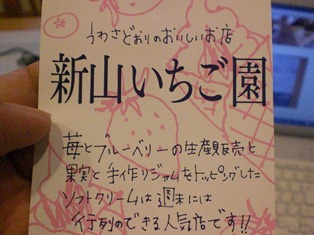 うわさどおりのおいしいお店
新山いちご園
苺とブルーベリーの生産販売と
果実と手作りジャムをトッピングした
ソフトクリームは週末には
行列のできる人気店です!!